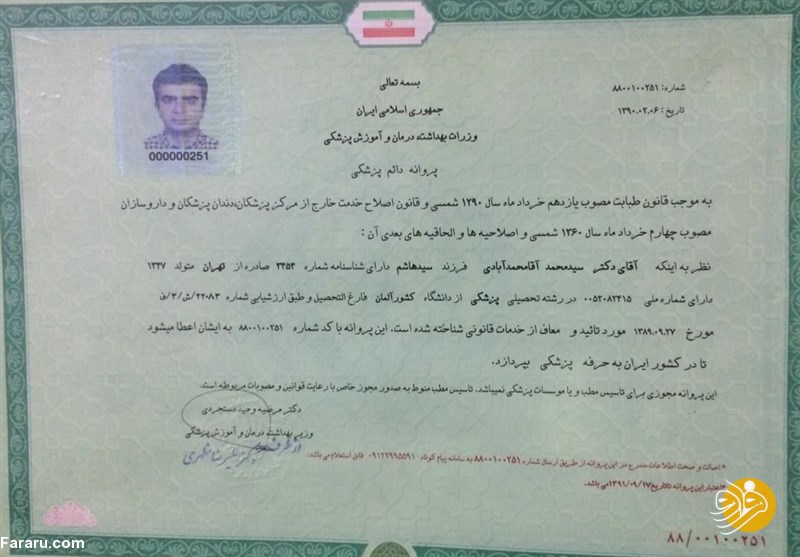 بسمه تعالی
شماره: ۸۸۰۰۱۰۰۲۵۱
جمهوری اسلامی ایران
تاریخ: ۱۳۹۰.۰۲.۰۶
وزرات بهداشت، درمان و آموزش پزشکی
000000251
پروانه دائم پزشکی
به موجب قانون طبابت مصوب یازدهم خرداد ماه سال ۱۲۹۰ شمسی و قانون اصلاح خدمت خارج از مرکز پزشکان، دندان پزشکان و داروسازان
مصوب چهارم خرداد ماه سال ۱۳۶۰ شمسی و اصلاحیه ها و الحاقیه های بعدی آن :
نظر به اینکه آقای دکتر سیدمحمد آقامحمدآبادی فرزند سیدهاشم دارای شناسنامه شماره ۳۴۵۴ صادره از تهران متولد ۱۳۴۷
دارای شماره ملی ۰۰۵۲۰۸۲۴۱۵ در رشته تحصیلی پزشکی از دانشگاه کشورآلمان فارغ التحصیل و طبق ارزشیابی شماره ۲۲۰۸۳/ش/۳/ق
مورخ ۱۳۸۹.۰۹.۲۷ مورد تائید و معاف از خدمات قانونی شناخته شده است. این پروانه با کد شماره ۸۸۰۰۱۰۰۲۵۱ به ایشان اعطا میشود
تا در کشور ایران به حرفه پزشکی بپردازد.
این پروانه مجوزی برای تاسیس مطب و یا موسسات پزشکی نمیباشد. تاسیس مطب منوط به صدور مجوز خاص با رعایت قوانین و مصوبات مربوطه است.
دکتر مرضیه وحید دستجردی
وزیر بهداشت، درمان و آموزش پزشکی
از طرف
دکتر علیرضا مظهری
* اصالت و صحت اطلاعات مندرج در این پروانه از طریق ارسال شماره ۸۸۰۰۱۰۰۲۵۱ به سامانه پیام کوتاه ۰۹۱۲۲۹۹۵۵۹۱ قابل استعلام می باشد.
* اعتبار این پروانه تا تاریخ ۱۳۹۱/۰۹/۱۷ می باشد.
۸۸/۰۰۱۰۰۲۵۱
فرارو
Fararu.com